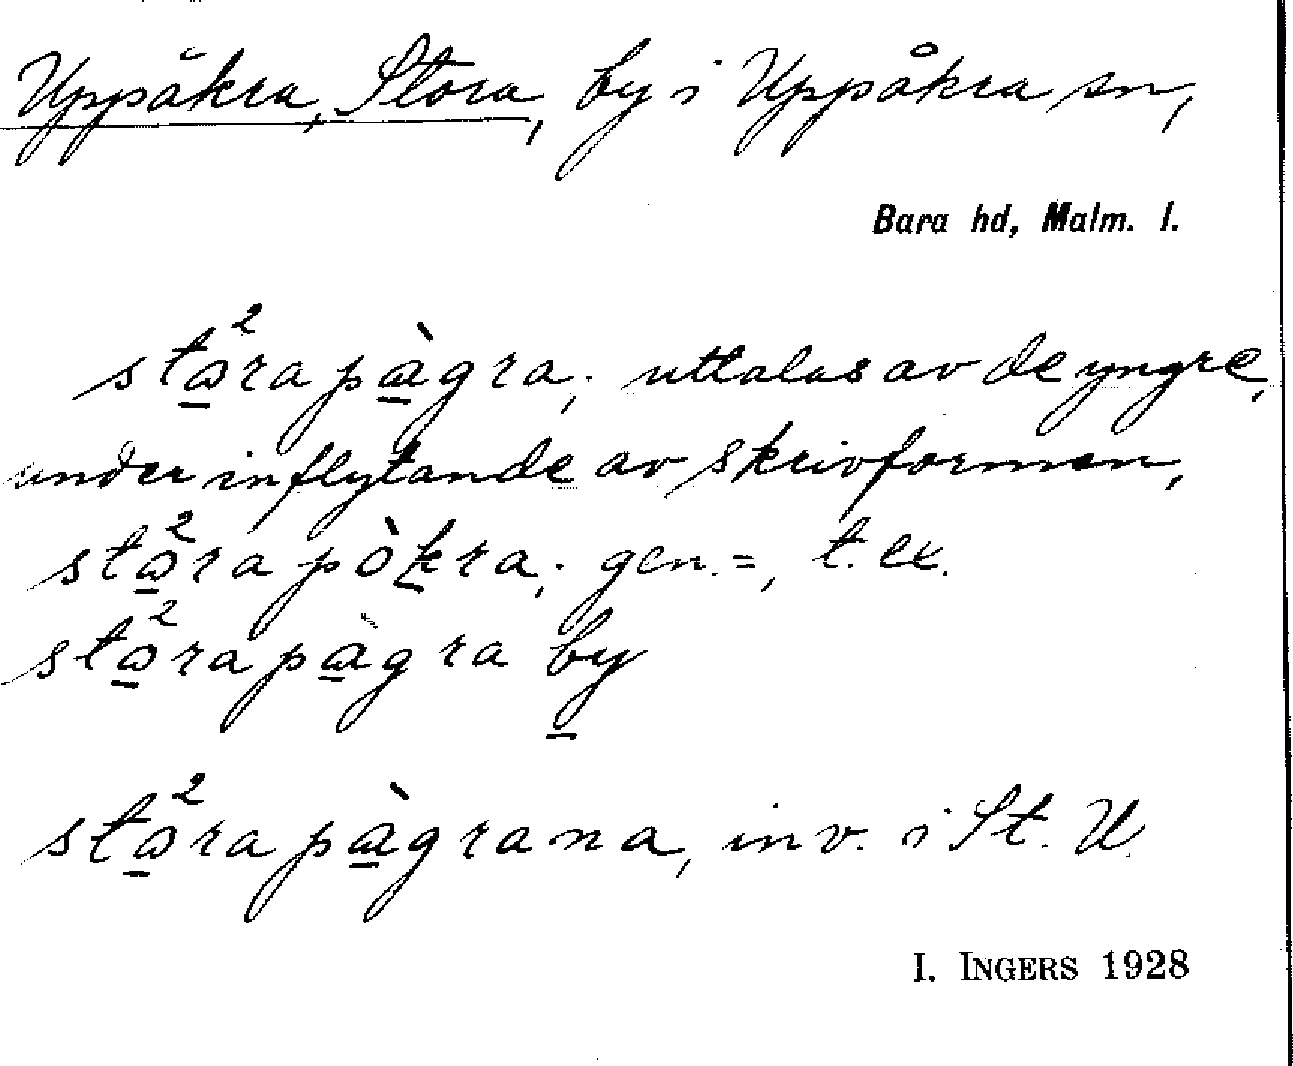 Uppåkra, Stora, by i Uppåkra sn,
Bara hd, Malm. l.
stα̱²rapὰ̱gra; uttalas av de yngre,
under inflytande av skrivformen,
stα̱²rapòk̠ra; gen. =, t. ex.
stα̱²rapὰ̱gra by̠
stα̱²rapὰ̱grana, inv. i St. U.
I. INGERS 1928